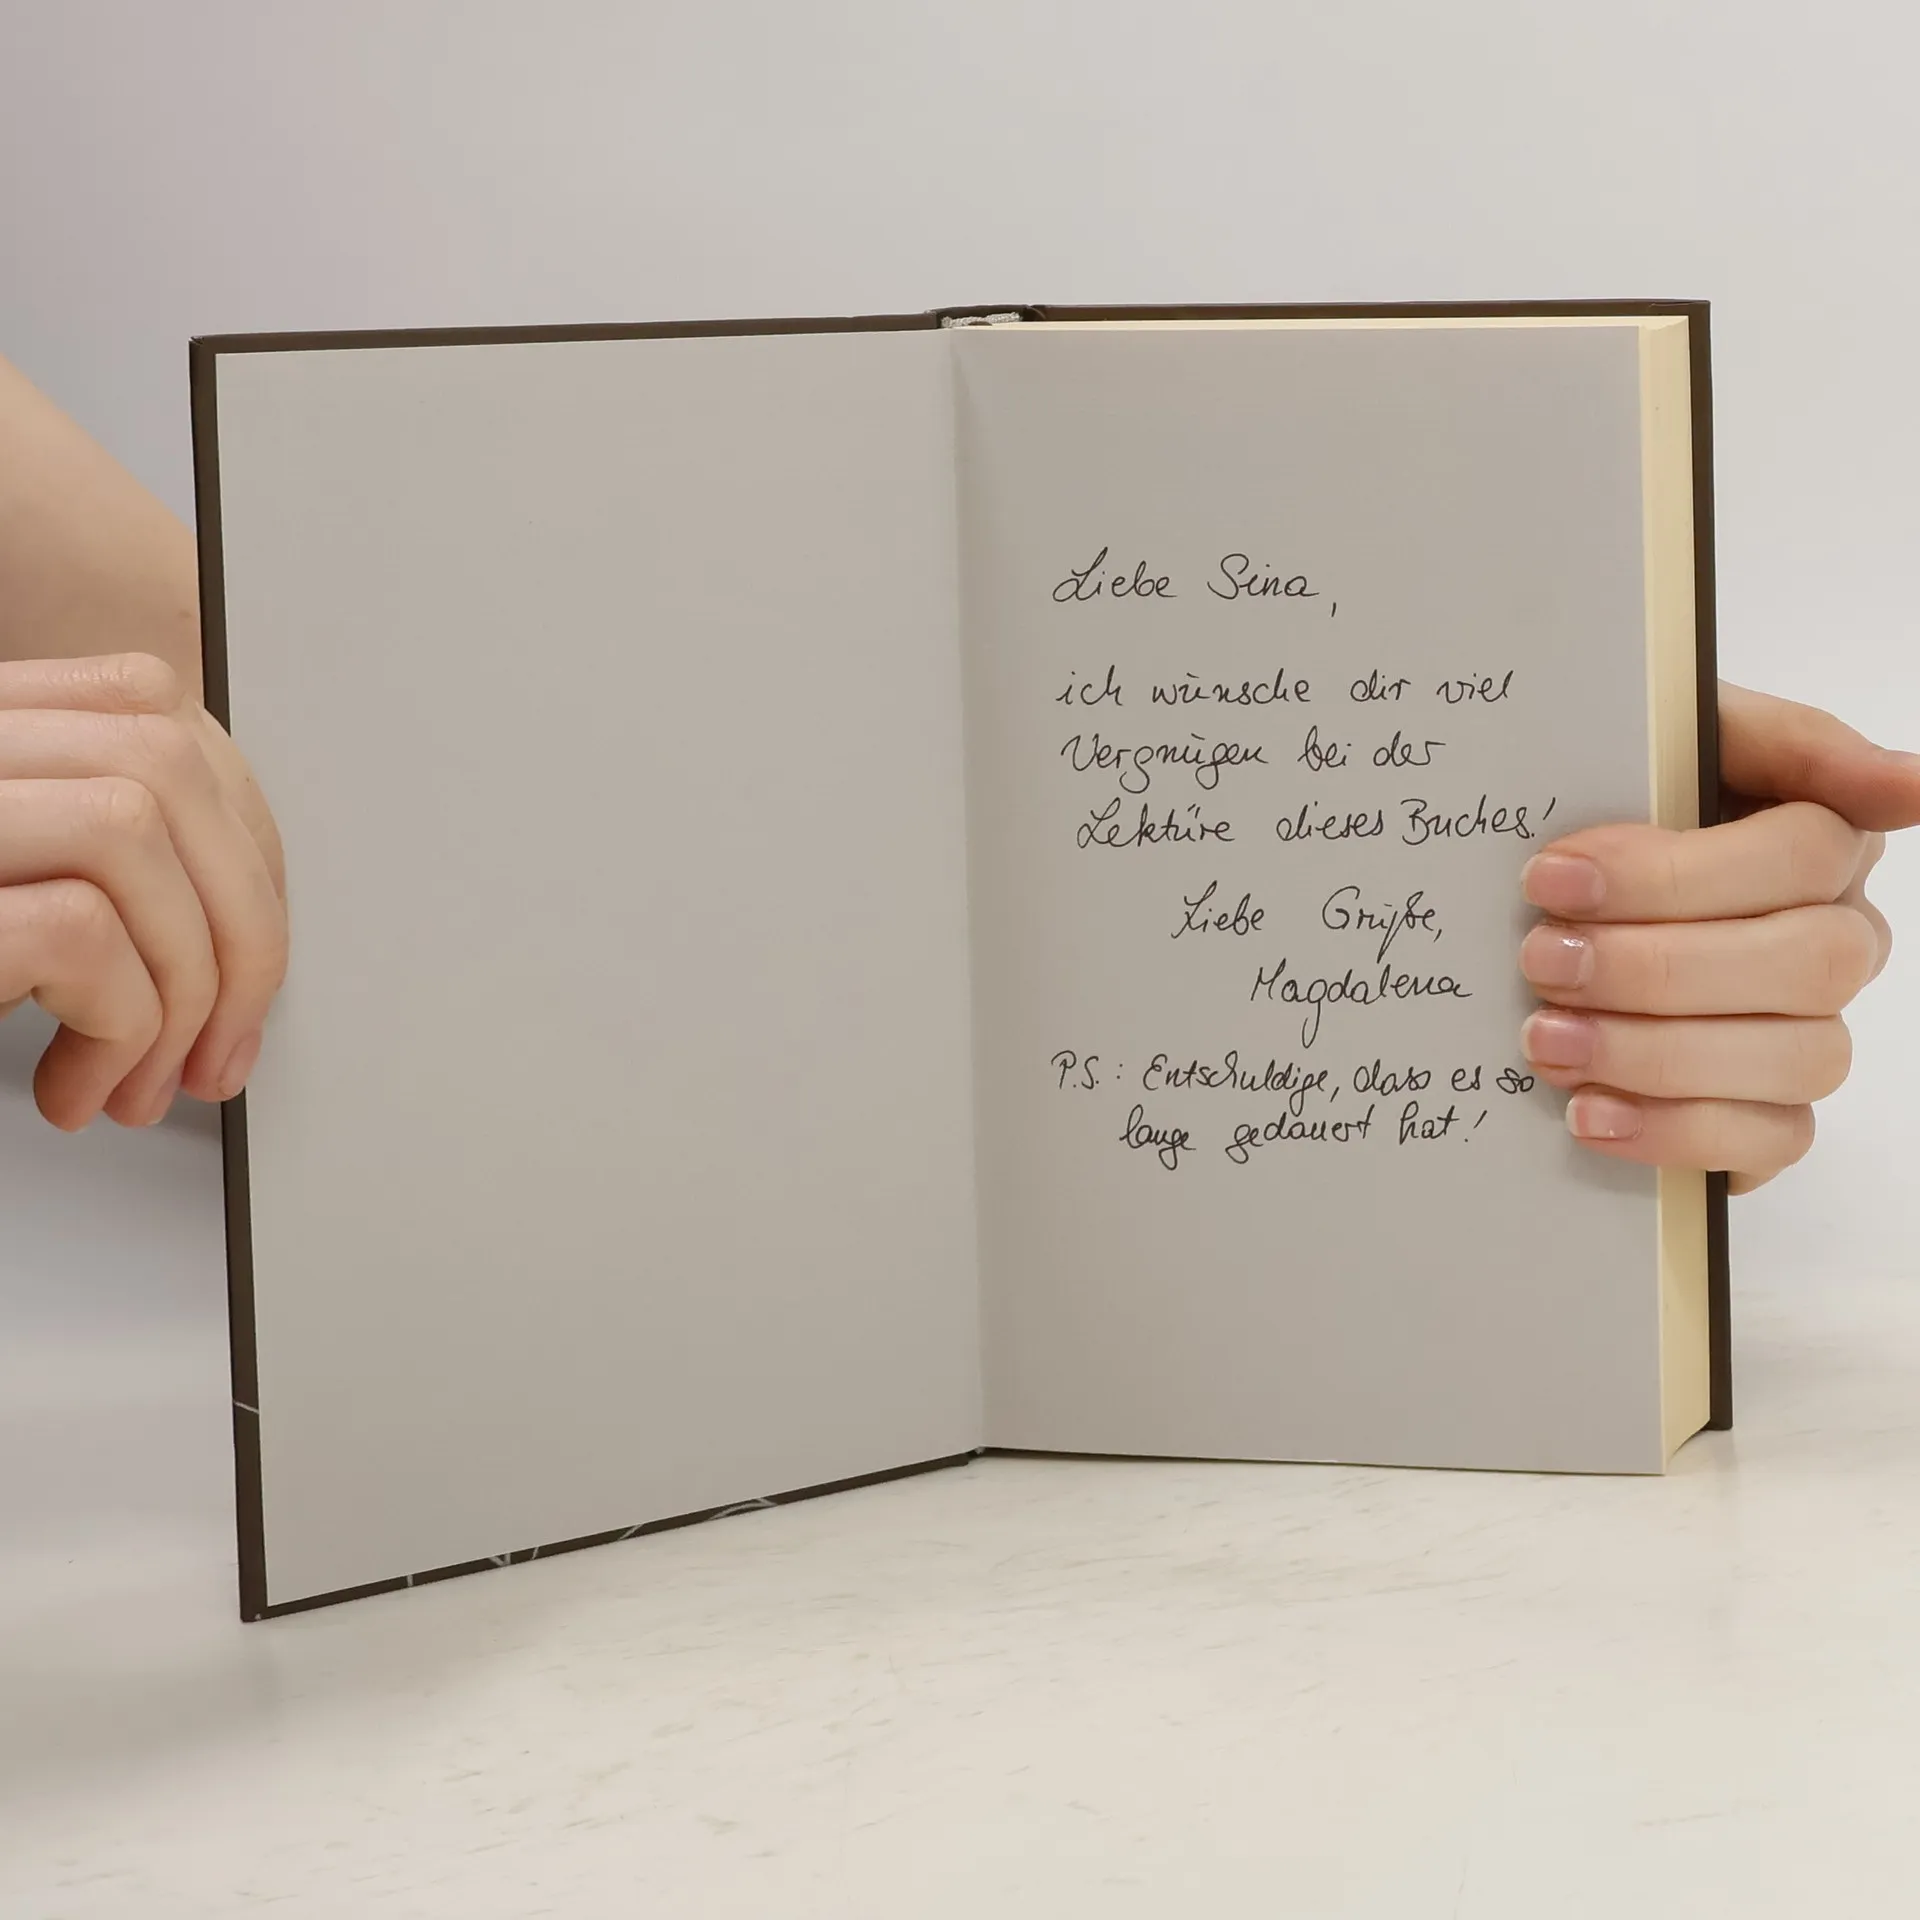 Liebe Sina,
ich wünsche dir viel
Vergnügen bei der
Lektüre dieses Buches!
Liebe Grüße,
Magdalena
P.S.: Entschuldige, dass es so
lange gedauert hat!